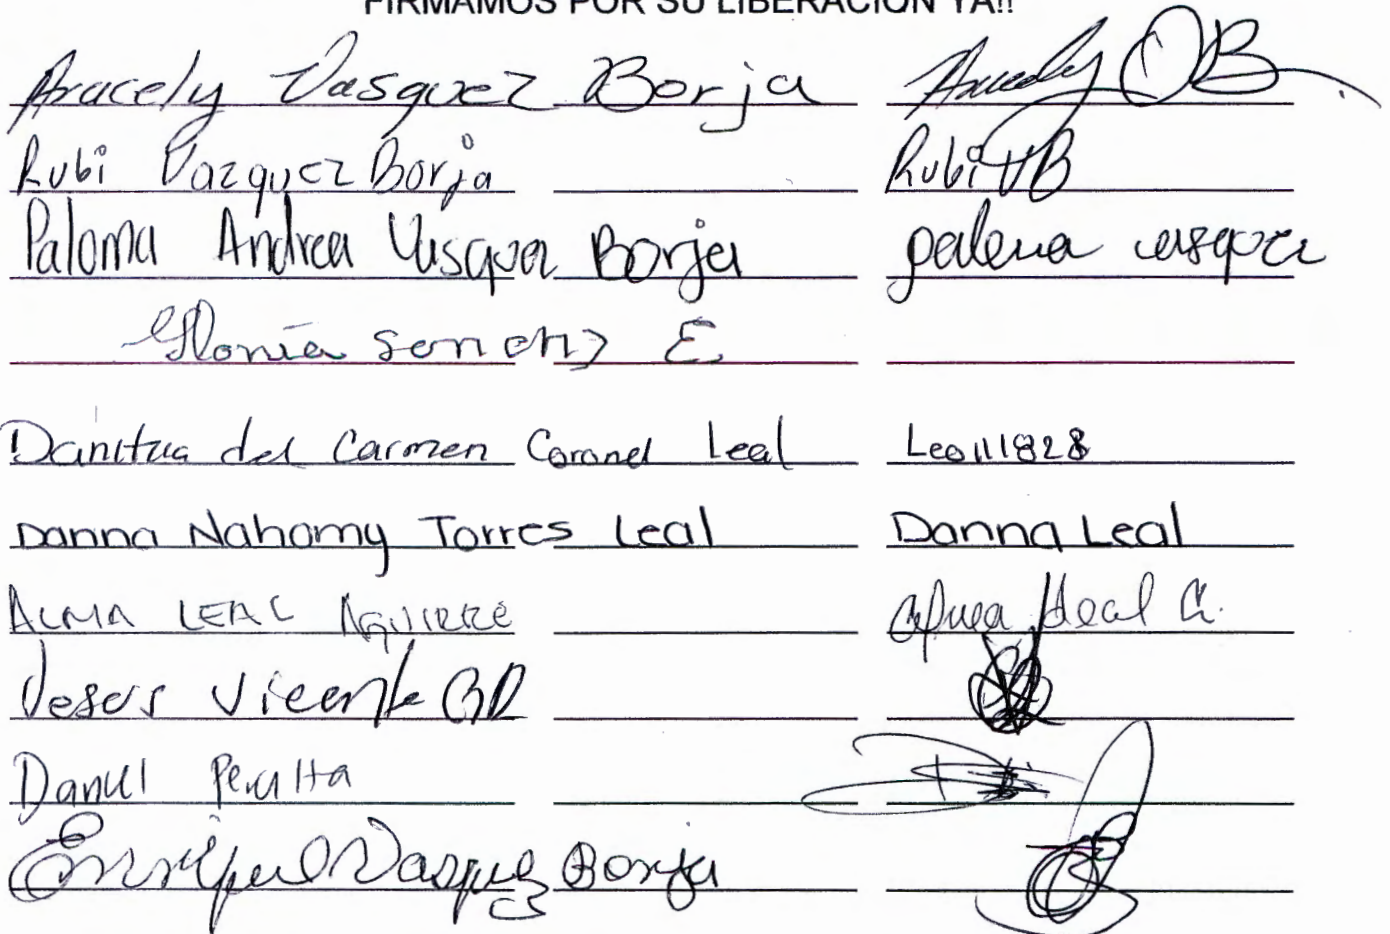 FIRMAMOS POR SU LIBERACIÓN YA!!
Aracely Vasquez Borja Aracely VB
Rubi Vazquez Borja Rubi VB
Paloma Andrea Vasquez Borja paloma vasquez
Gloria E
del Carmen Coronel Leal
Danna Nahomy Torres Leal Danna Leal
ALMA LEAL AGUIRRE Alma Leal A.
Jesus Vicente
Daniel Peralta
Enrique Vasquez Borja